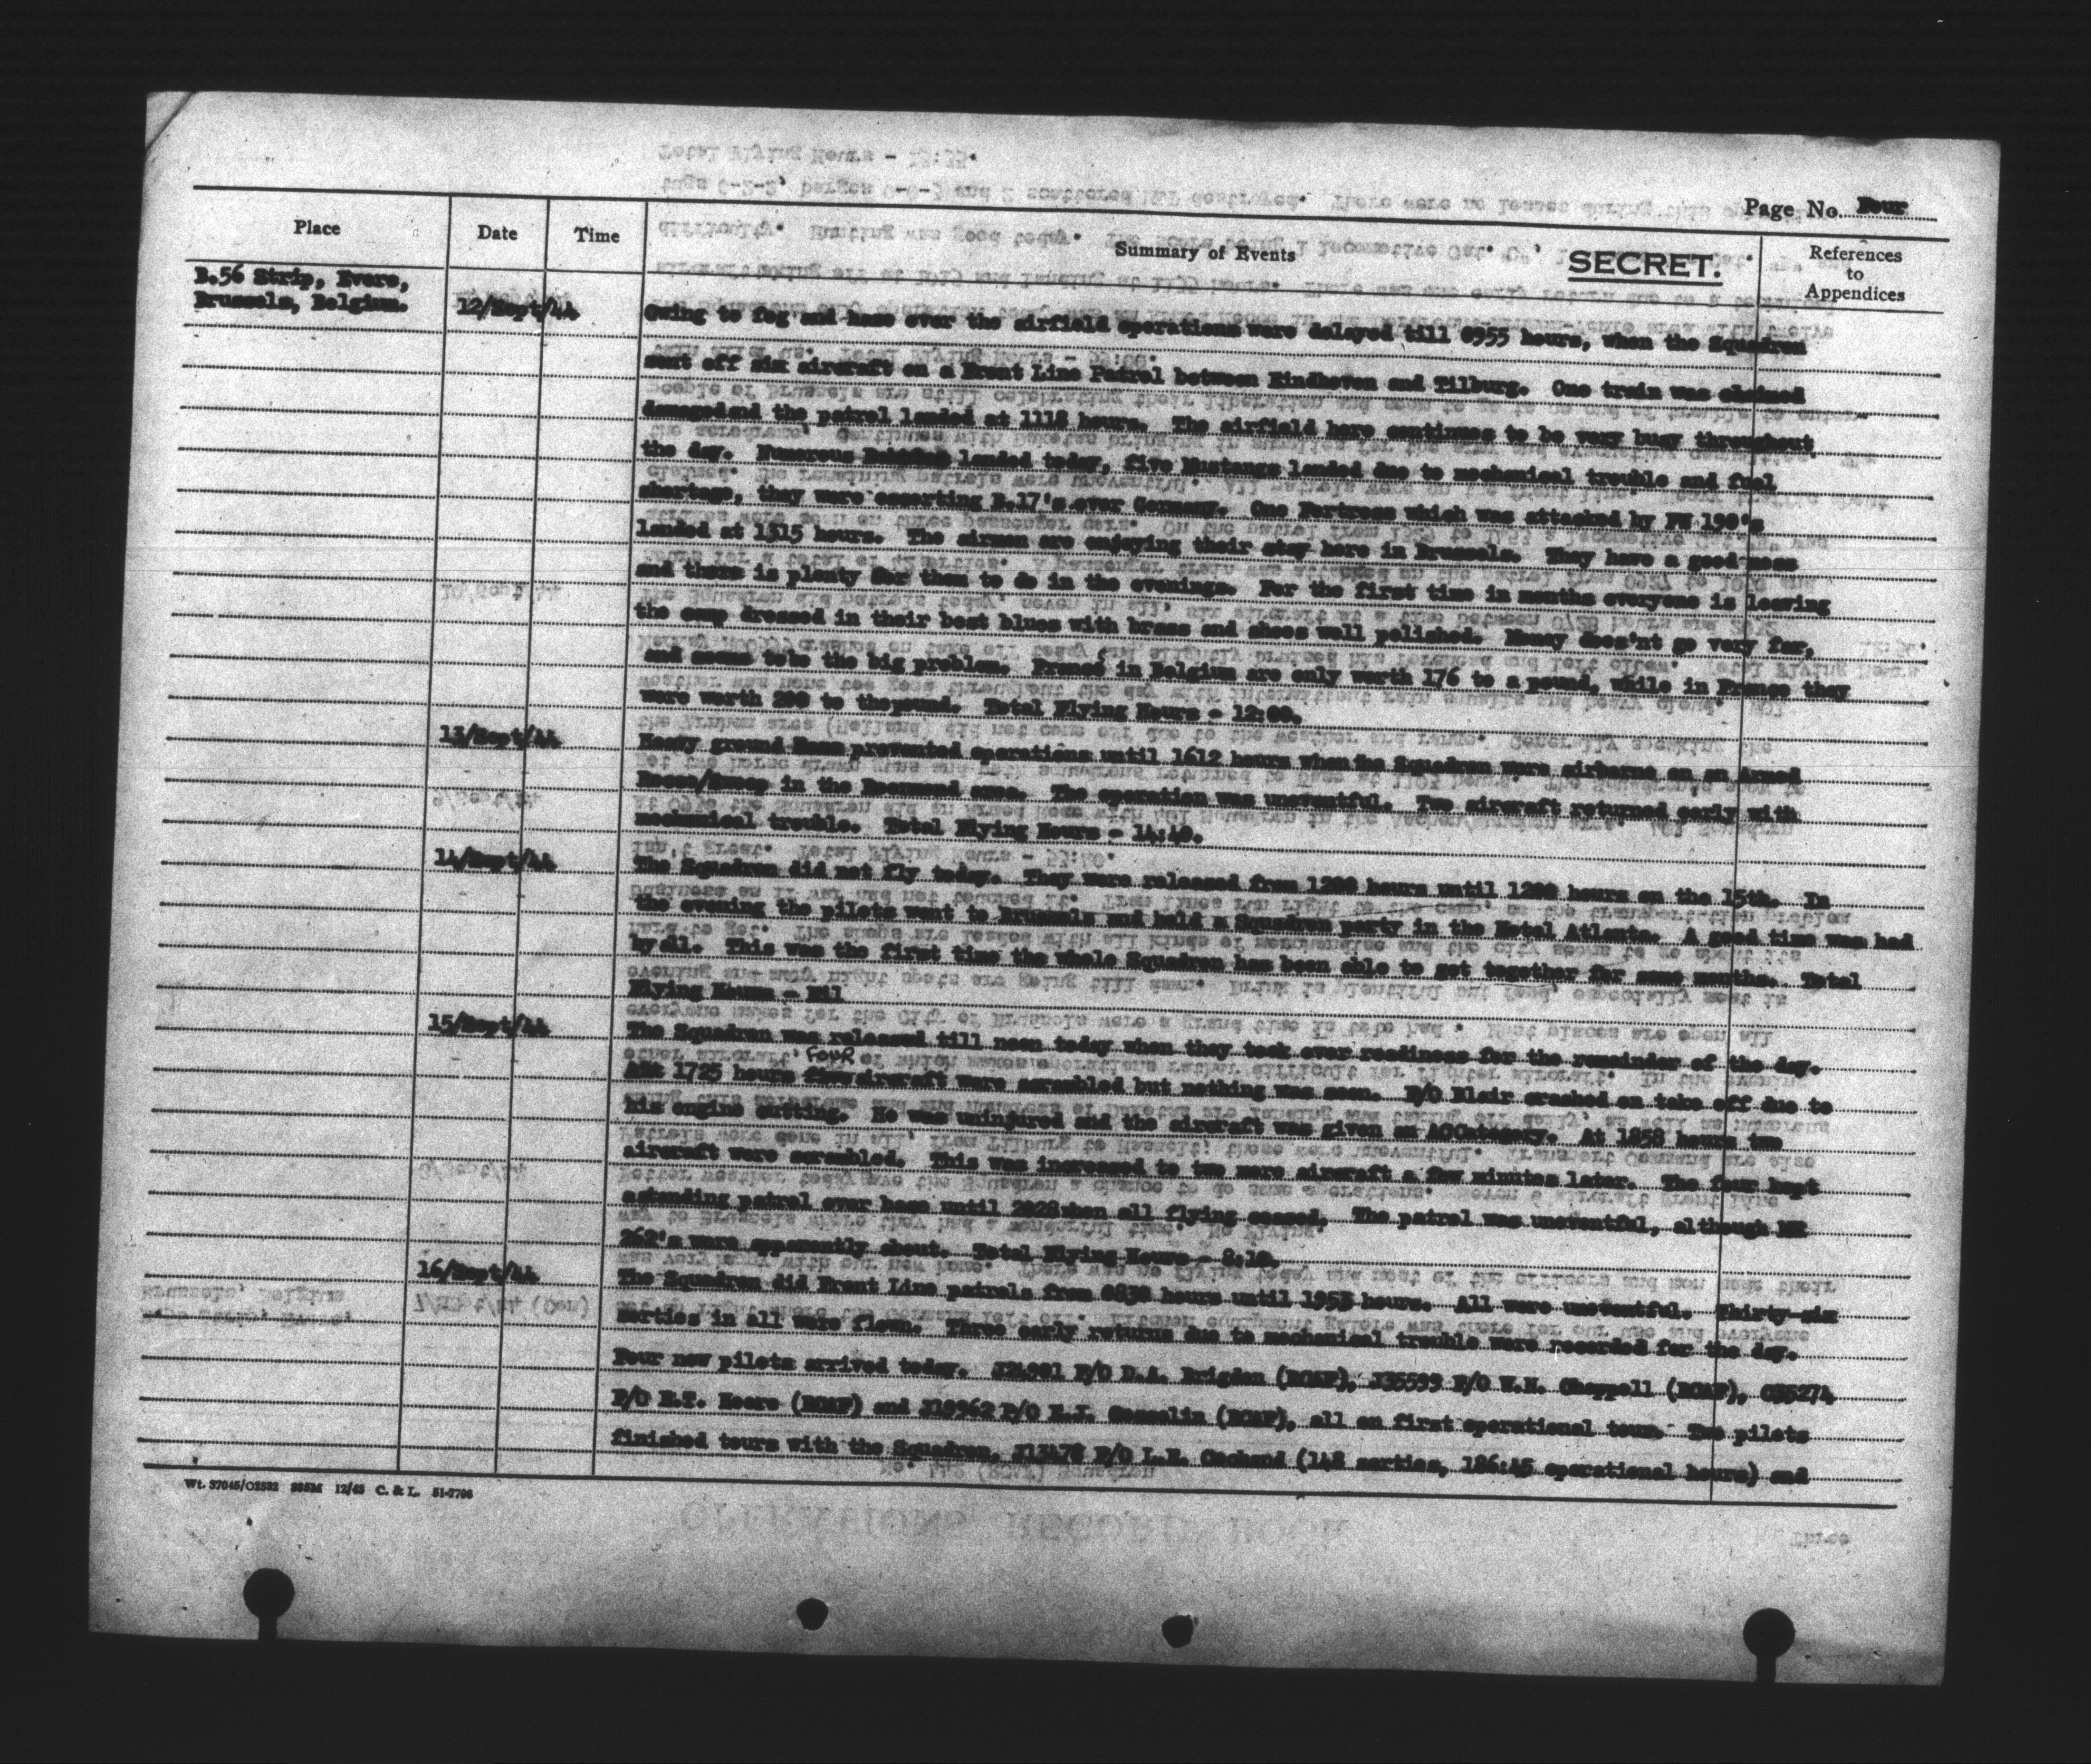 Page No. Four
Place Date Time Summary of Events SECRET. References to Appendices
B.56 Strip, Evere,
Brussels, Belgium.
12/Sept/44 Owing to fog and haze over the airfield operations were delayed till 0955 hours, when the Squadron
sent off six aircraft on a Front Line Patrol between Eindhoven and Tilburg. One train was claimed
damaged and the patrol landed at 1118 hours. The airfield here continues to be very busy throughout
the day. Numerous landed today, five Mustangs landed due to mechanical trouble and fuel
shortage, they were escorting B.17's over Germany. One Fortress which was attacked by FW 190's
landed at 1315 hours. The airmen are enjoying their stay here in Brussels. They have a good mess
and there is plenty for them to do in the evenings. For the first time in months everyone is leaving
the camp dressed in their best blues with brass and shoes well polished. Money does'nt go very far,
and seems to be the big problem. Francs in Belgium are only worth 176 to a pound, while in France they
were worth 200 to the pound. Total Flying Hours - 12:00.
13/Sept/44 Heavy ground haze prevented operations until 1612 hours when the Squadron were airborne on an Armed
Recce/Sweep in the Roermond area. The operation was uneventful. Two aircraft returned early with
mechanical trouble. Total Flying Hours - 14:40.
14/Sept/44 The Squadron did not fly today. They were released from 1200 hours until 1200 hours on the 15th. In
the evening the pilots went to Brussels and held a Squadron party in the Hotel Atlanta. A good time was had
by all. This was the first time the whole Squadron has been able to get together for some months. Total
Flying Hours - Nil
15/Sept/44 The Squadron was released till noon today when they took over readiness for the remainder of the day.
At 1725 hours FOUR aircraft were scrambled but nothing was seen. F/O Blair crashed on take off due to
his engine cutting. He was uninjured and the aircraft was given an AC Category. At 1858 hours two
aircraft were scrambled. This was increased to two more aircraft a few minutes later. The four kept
a standing patrol over base until 2028 when all flying ceased. The patrol was uneventful, although ME
262's were apparently about. Total Flying Hours - 8:10.
16/Sept/44 The Squadron did Front Line patrols from 0830 hours until 1953 hours. All were uneventful. Thirty-six
sorties in all were flown. Three early returns due to mechanical trouble were recorded for the day.
Four new pilots arrived today. J24901 F/O D.A. Brigden (RCAF), J35599 F/O W.H. Chappell (RCAF), C35274
F/O R.T. Hoare (RCAF) and J19962 F/O E.J. Gosselin (RCAF), all on first operational tour. Two pilots
finished tours with the Squadron, J13478 F/O L.E. Cochand (148 sorties, 186:45 operational hours) and
Wt. 37045/O2582 285M 12/43 C. & L. 51-7706